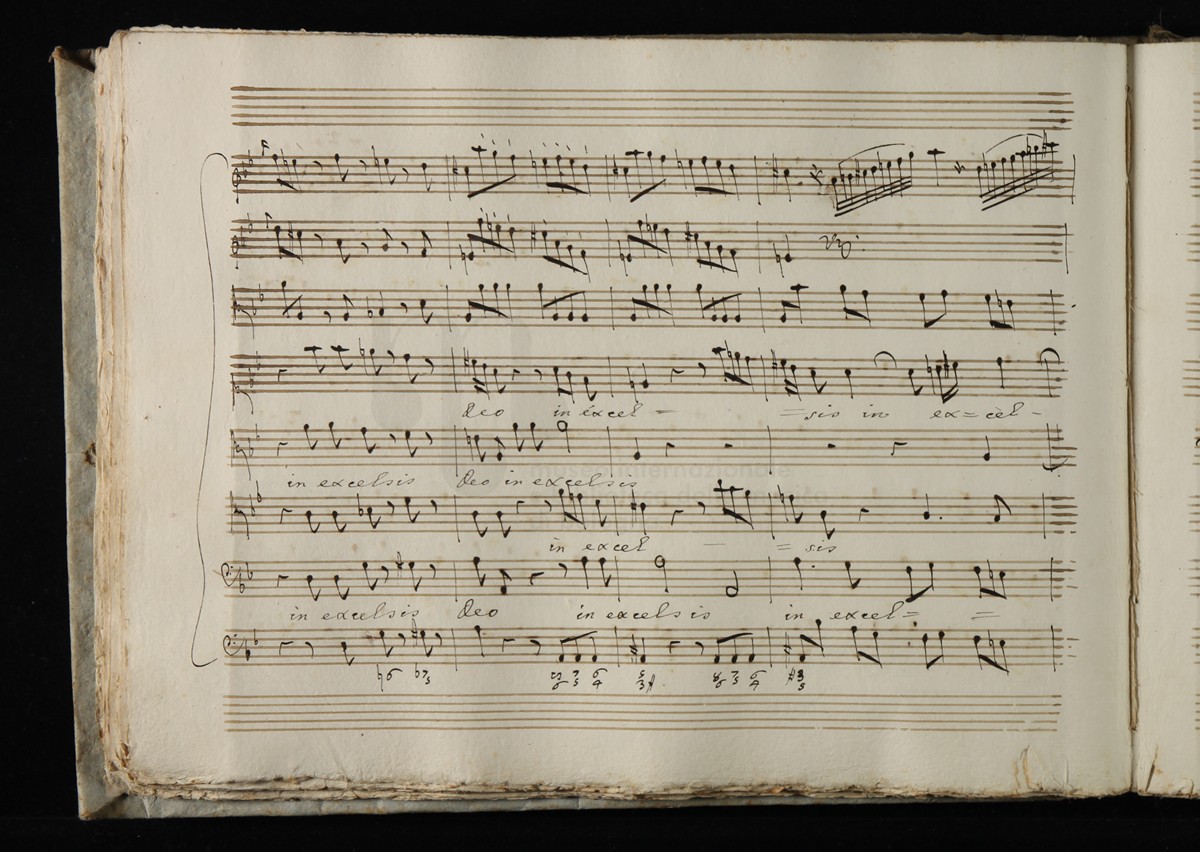 Deo in excel - = sis in ex = cel -
in excelsis Deo in excelsis
museo internazionale
in excel - = sis
in excelsis Deo in excelsis in excel = =